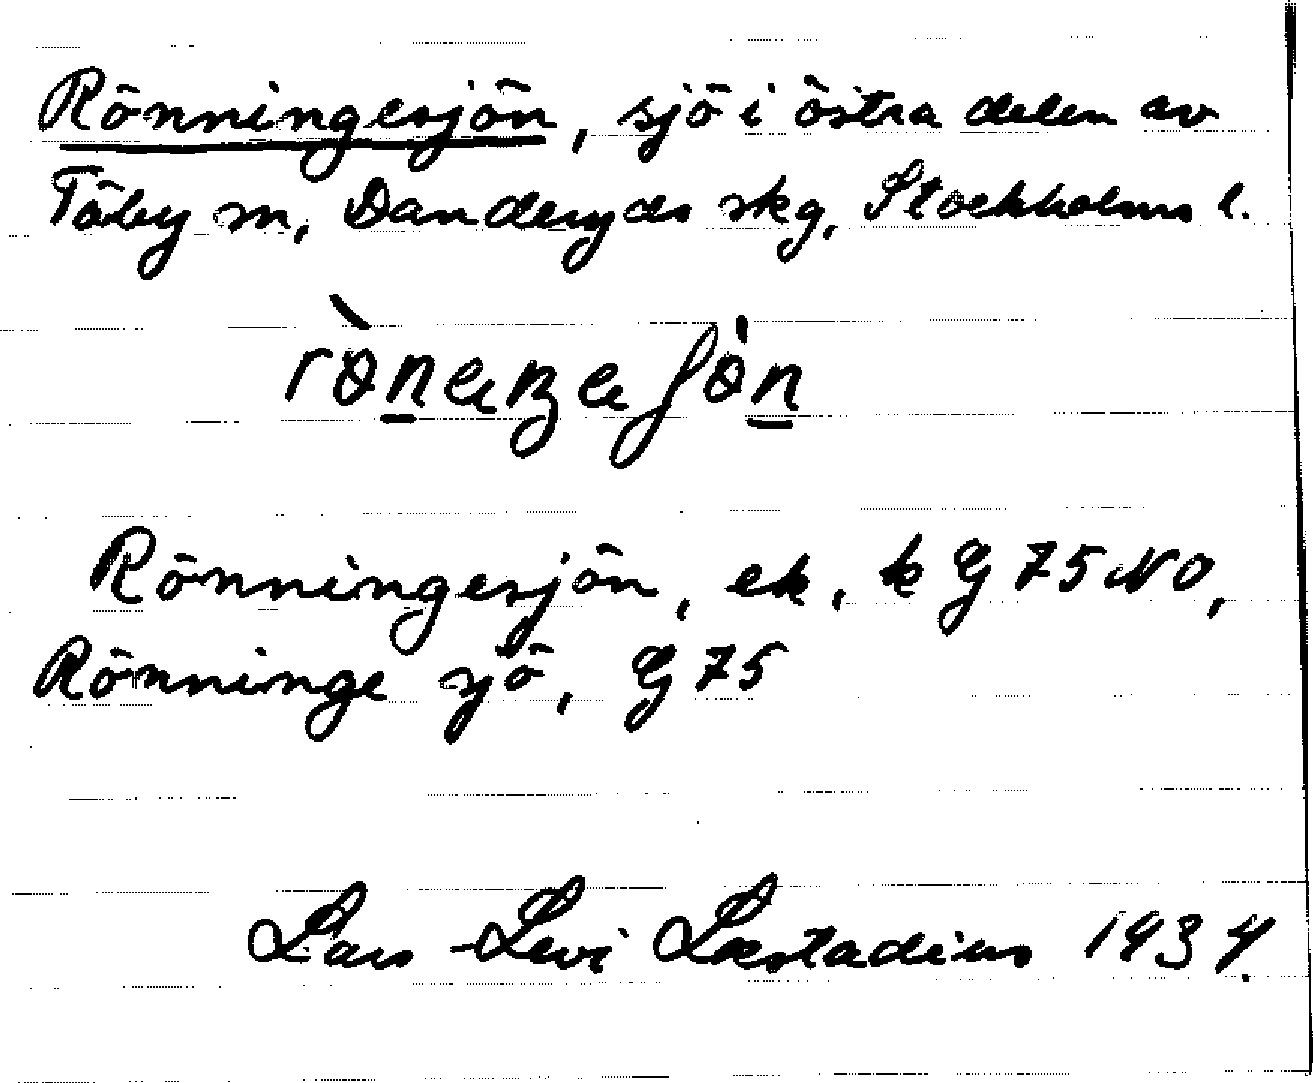 Rönningesjön, sjö i östra delen av
Täby sn, Danderyds skg, Stockholms l.
Rönningesjön, ek, k G 75 NO,
Rönninge sjö, G 75
Lars-Levi Læstadius 1934.